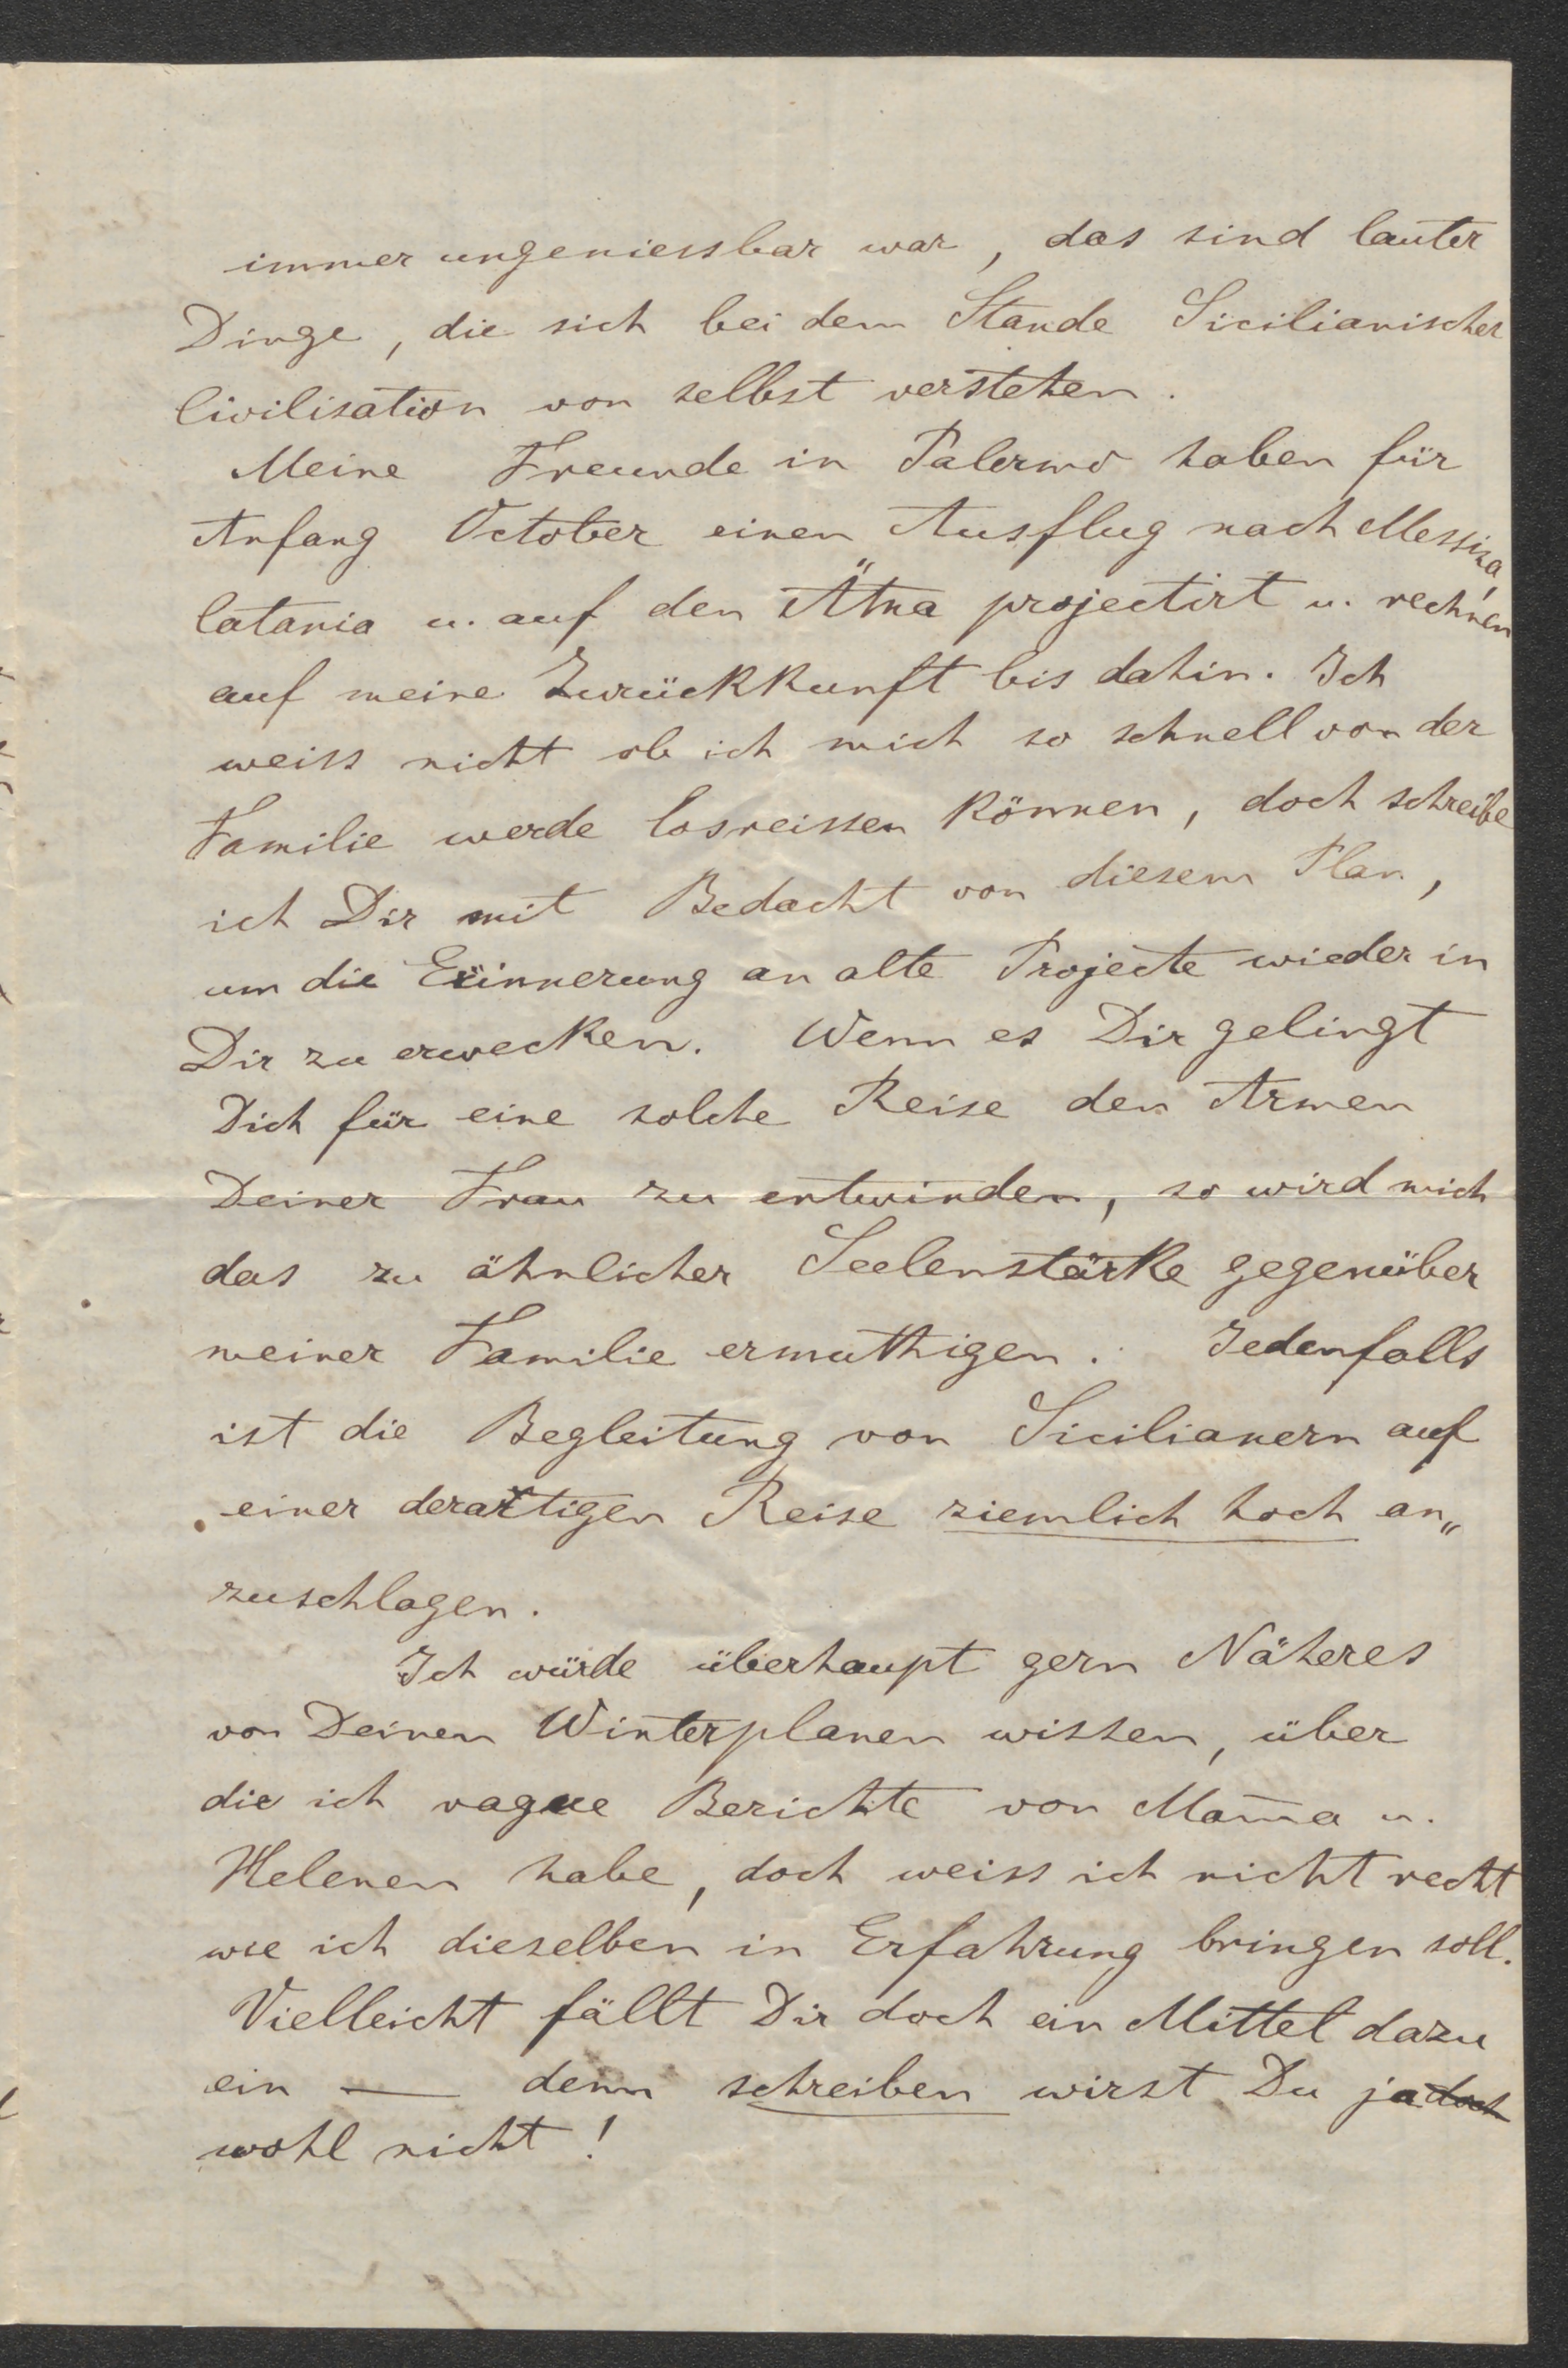 immer ungeniessbar war, das sind lauter
Dinge, die sich bei dem Stande Sicilianischer
Civilisation von selbst verstehen.
Meine Freunde in Palermo haben für
Anfang October einen Ausflug nach Messina,
Catania u. auf den Ätna projectirt u. rechnen
auf meine Zurückkunft bis dahin. Ich
weiss nicht ob ich mich so schnell von der
Familie werde losreissen können, doch schreibe
ich Dir mit Bedacht von diesem Plan,
um die Erinnerung an alte Projecte wieder in
Dir zu erwecken. Wenn es Dir gelingt
Dich für eine solche Reise den Armen
Deiner Frau zu entwinden, so wird mich
das zu ähnlicher Seelenstärke gegenüber
meiner Familie ermuthigen. Jedenfalls
ist die Begleitung von Sicilianern auf
einer derartigen Reise ziemlich hoch an„
zuschlagen.
Ich würde überhaupt gern Näheres
von Deinen Winterplanen wissen, über
die ich vague Berichte von Mam̄a u.
Helenen habe, doch weiss ich nicht recht
wie ich dieselben in Erfahrung bringen soll.
Vielleicht fällt Dir doch ein Mittel dazu
ein — denn schreiben wirst Du ja doch
wohl nicht!